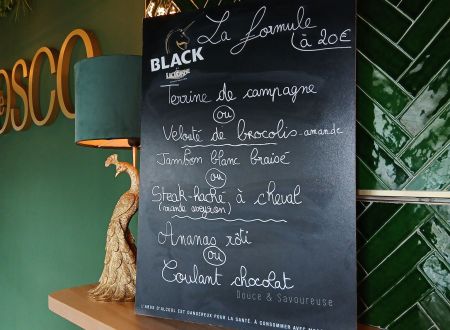 OSCO
La formule
à 20€
BLACK
Terrine de campagne
ou
Velouté de brocolis-amande
Jambon blanc braisé
ou
Steak-haché à cheval
(viande aveyron)
Ananas rôti
ou
Coulant chocolat
Douce & Savoureuse
L'ABUS D'ALCOOL EST DANGEREUX POUR LA SANTÉ. À CONSOMMER AVEC